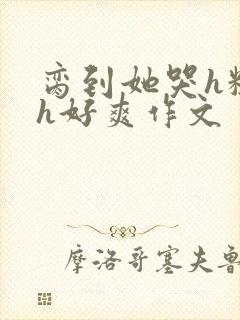 脔到她哭h粗
h好爽作文
摩洛哥塞夫鲁